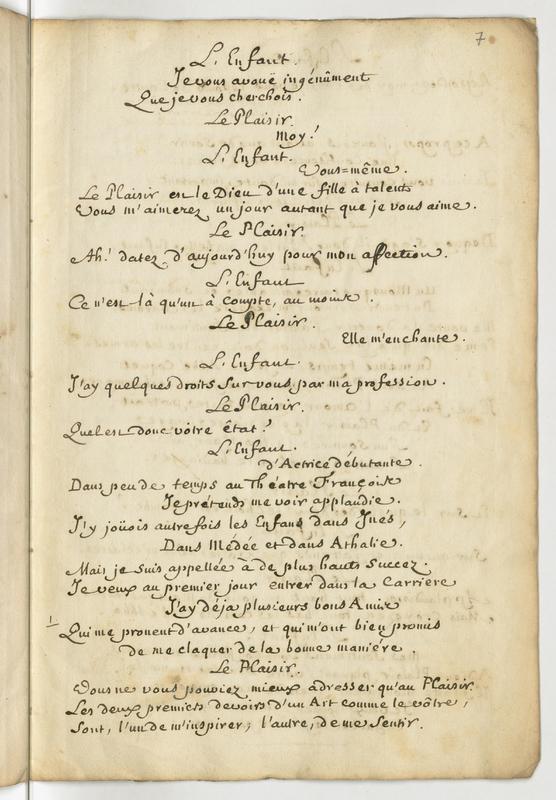 7
L'Enfant.
Je vous avouë ingénûment
Que je vous cherchois.
Le Plaisir.
Moy!
L'Enfant.
Vous=même.
Le Plaisir est le Dieu d'une fille à talents
Vous m'aimerez un jour autant que je vous aime.
Le Plaisir.
Ah! datez d'aujourd'huy pour mon affection.
L'Enfant
Ce n'est là qu'un à compte, au moins.
Le Plaisir.
Elle m'enchante.
L'Enfant.
J'ay quelques droits sur vous par ma profession.
Le Plaisir.
Quel est donc vôtre état?
L'Enfant.
d'Actrice débutante.
Dans peu de temps au Théatre François
Je prétends me voir applaudie.
J'y joüois autrefois les Enfans dans Inés,
Dans Médée et dans Athalie.
Mais je suis appellée à de plus hauts Succez.
Je veux au premier jour entrer dans la Carriere
J'ay déja plusieurs bons Amis
Qui me pronent d'avance, et qui m'ont bien promis
de me claquer de la bonne maniére.
Le Plaisir.
Vous ne vous pouviez mieux adresser qu'au Plaisir.
Les deux premiers devoirs d'un Art comme le vôtre,
Sont, l'un de m'inspirer; l'autre, de me Sentir.